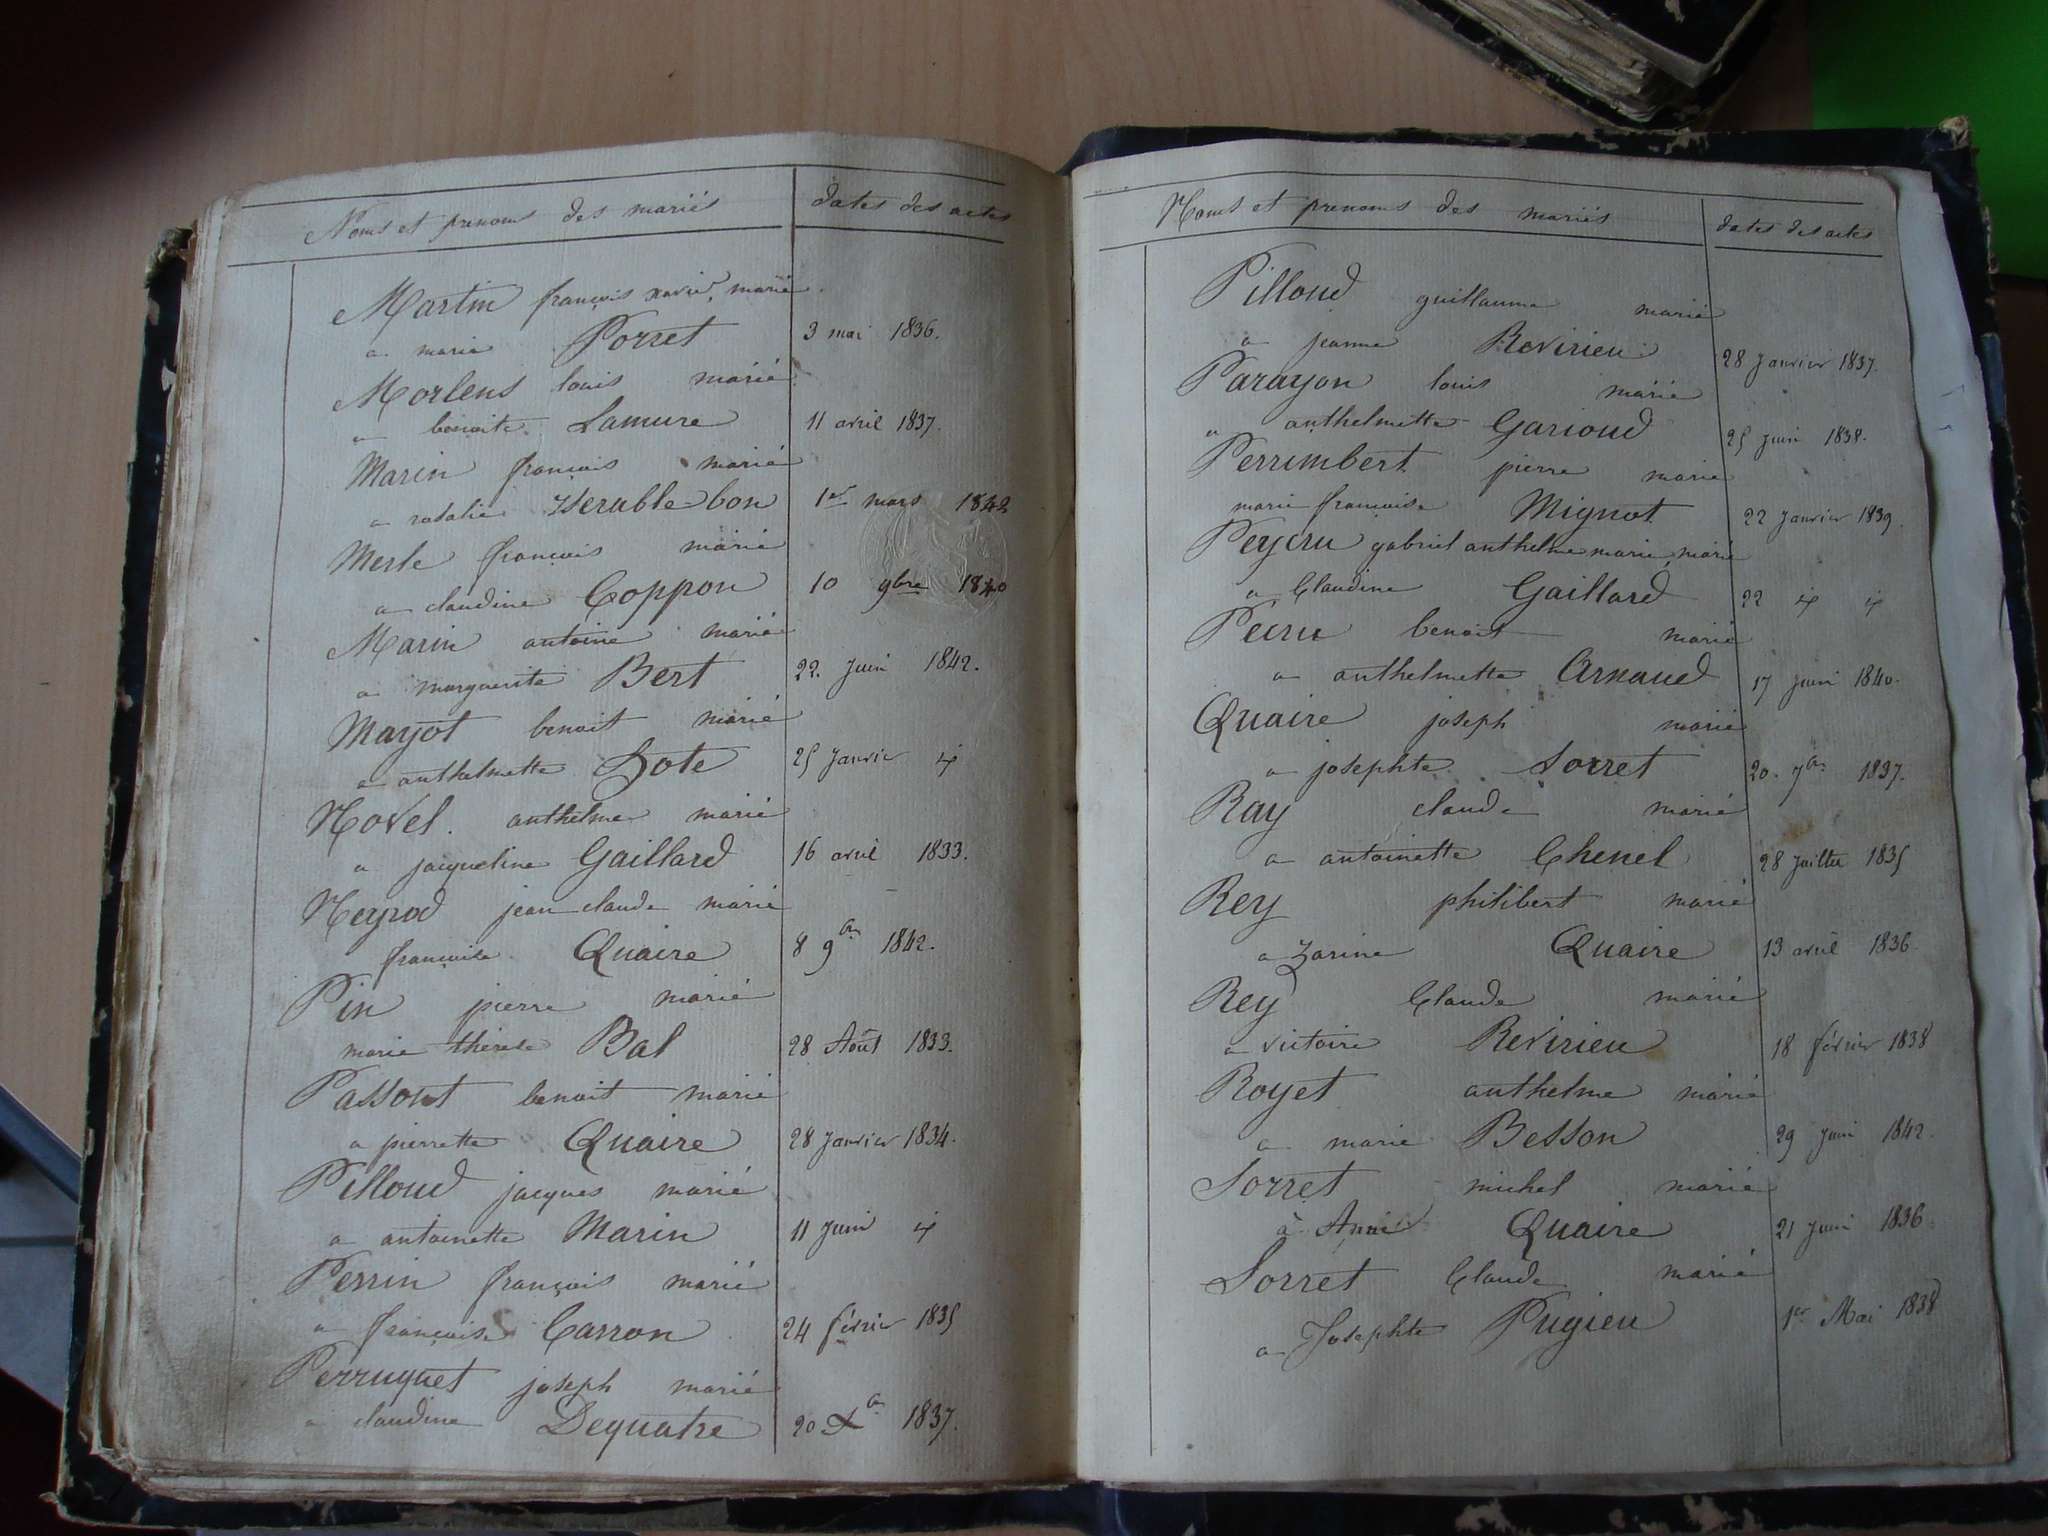 Noms et prenoms des mariés dates des actes
Martin françois xavier, marié
a marie Porret 3 mai 1836.
Morlens louis marié
a benoite Lamure 11 avril 1837.
Marin françois marié
a rosalie Iserable-bon 1er mars 1842
Merle françois marié
a claudine Coppon 10 9bre 1840
Marin antoine marié
a marguerite Bert 22. Juin 1842.
Mayot benoit marié
a anthelmette Sote 25 Janvier id
Novel. anthelme marié
a jacqueline Gaillard 16 avril 1833.
Neyrod jean claude marié
françoise Quaire 8 9bre 1842.
Pin pierre marié
marie thérese Bal 28 Août 1833.
Passout benoit marié
a pierrette Quaire 28 Janvier 1834.
Pilloud jacques marié
a antoinette Marin 11 Juin id
Perrin françois marié
a françoise Carron 24 février 1835
Perruquet joseph marié
a claudine Dequatre 20 Xbre 1837.
Noms et prenoms des mariés dates des actes
Pilloud guillaume marié
a jeanne Revirieu 28 Janvier 1837.
Parayon louis marié
a anthelmette Garioud 25 Juin 1838.
Perrimbert pierre marié
marie françoise Mignot 22 Janvier 1839.
Peycru gabriel anthelme marie, marié
a Claudine Gaillard 22 id id
Pecru benoit marié
a anthelmette Arnaud 17 Juin 1840.
Quaire joseph marié
a josephte Sorret 20. 7bre 1837.
Ray claude marié
a antoinette Chenel 28 Juillet 1835
Rey philibert marié
a zarine Quaire 13 avril 1836.
Rey Claude marié
a victoire Revirieu 18 février 1838
Royet anthelme marié
a marie Besson 29 Juin 1842.
Sorret michel marié
à Anne Quaire 21 Juin 1836
Sorret Claude marié
a Josephte Pugieu 1er Mai 1838